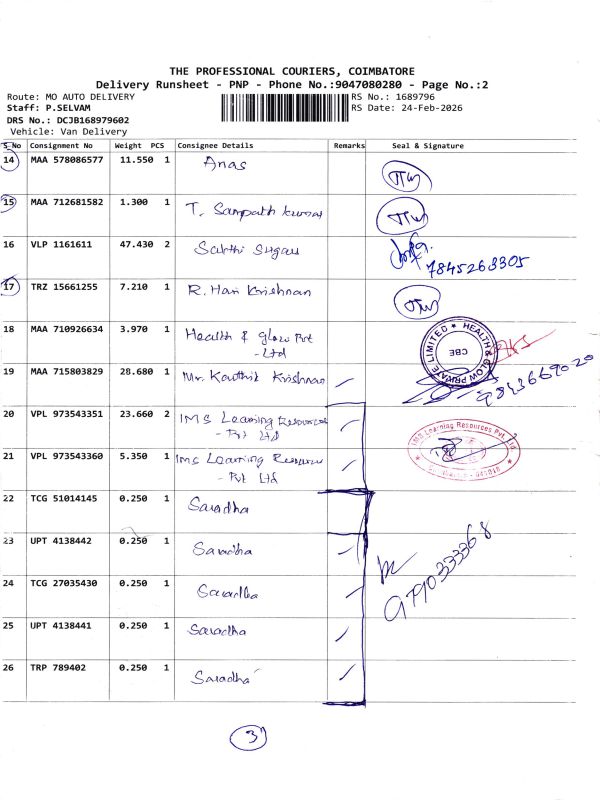 THE PROFESSIONAL COURIERS, COIMBATORE
Delivery Runsheet - PNP - Phone No.:9047080280 - Page No.:2
Route: MO AUTO DELIVERY
RS No.: 1689796
Staff: P.SELVAM
RS Date: 24-Feb-2026
DRS No.: DCJB168979602
Vehicle: Van Delivery
S No Consignment No Weight PCS Consignee Details Remarks Seal & Signature
14 MAA 578086577 11.550 1 Anas
15 MAA 712681582 1.300 1 T. Sampath kumar
16 VLP 1161611 47.430 2 Sakthi Sugars
7845263305
17 TRZ 15661255 7.210 1 R. Hari Krishnan
18 MAA 710926634 3.970 1 Health & glow Pvt
- Ltd
HEALTH & GLOW PRIVATE LIMITED
CBE
19 MAA 715803829 28.680 1 Mr. Karthik Krishnan
9843669020
20 VPL 973543351 23.660 2 IMS Learning Resources
- Pvt Ltd
IMS Learning Resources Pvt. Ltd
21 VPL 973543360 5.350 1 IMS Learning Resources
- Pvt Ltd
22 TCG 51014145 0.250 1 Saradha
23 UPT 4138442 0.250 1 Saradha
24 TCG 27035430 0.250 1 Saradha
25 UPT 4138441 0.250 1 Saradha
26 TRP 789402 0.250 1 Saradha
3